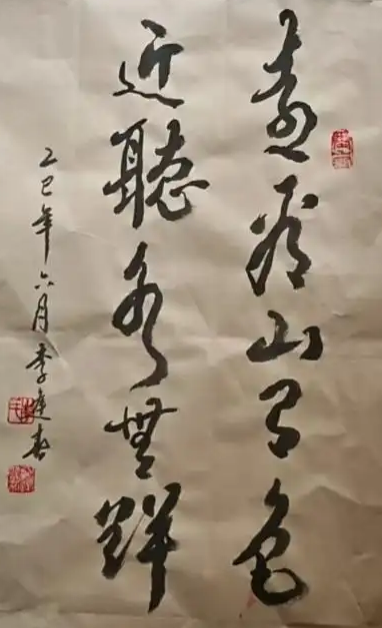 遠看山有色
近聽水無聲
乙巳年六月李蓮春